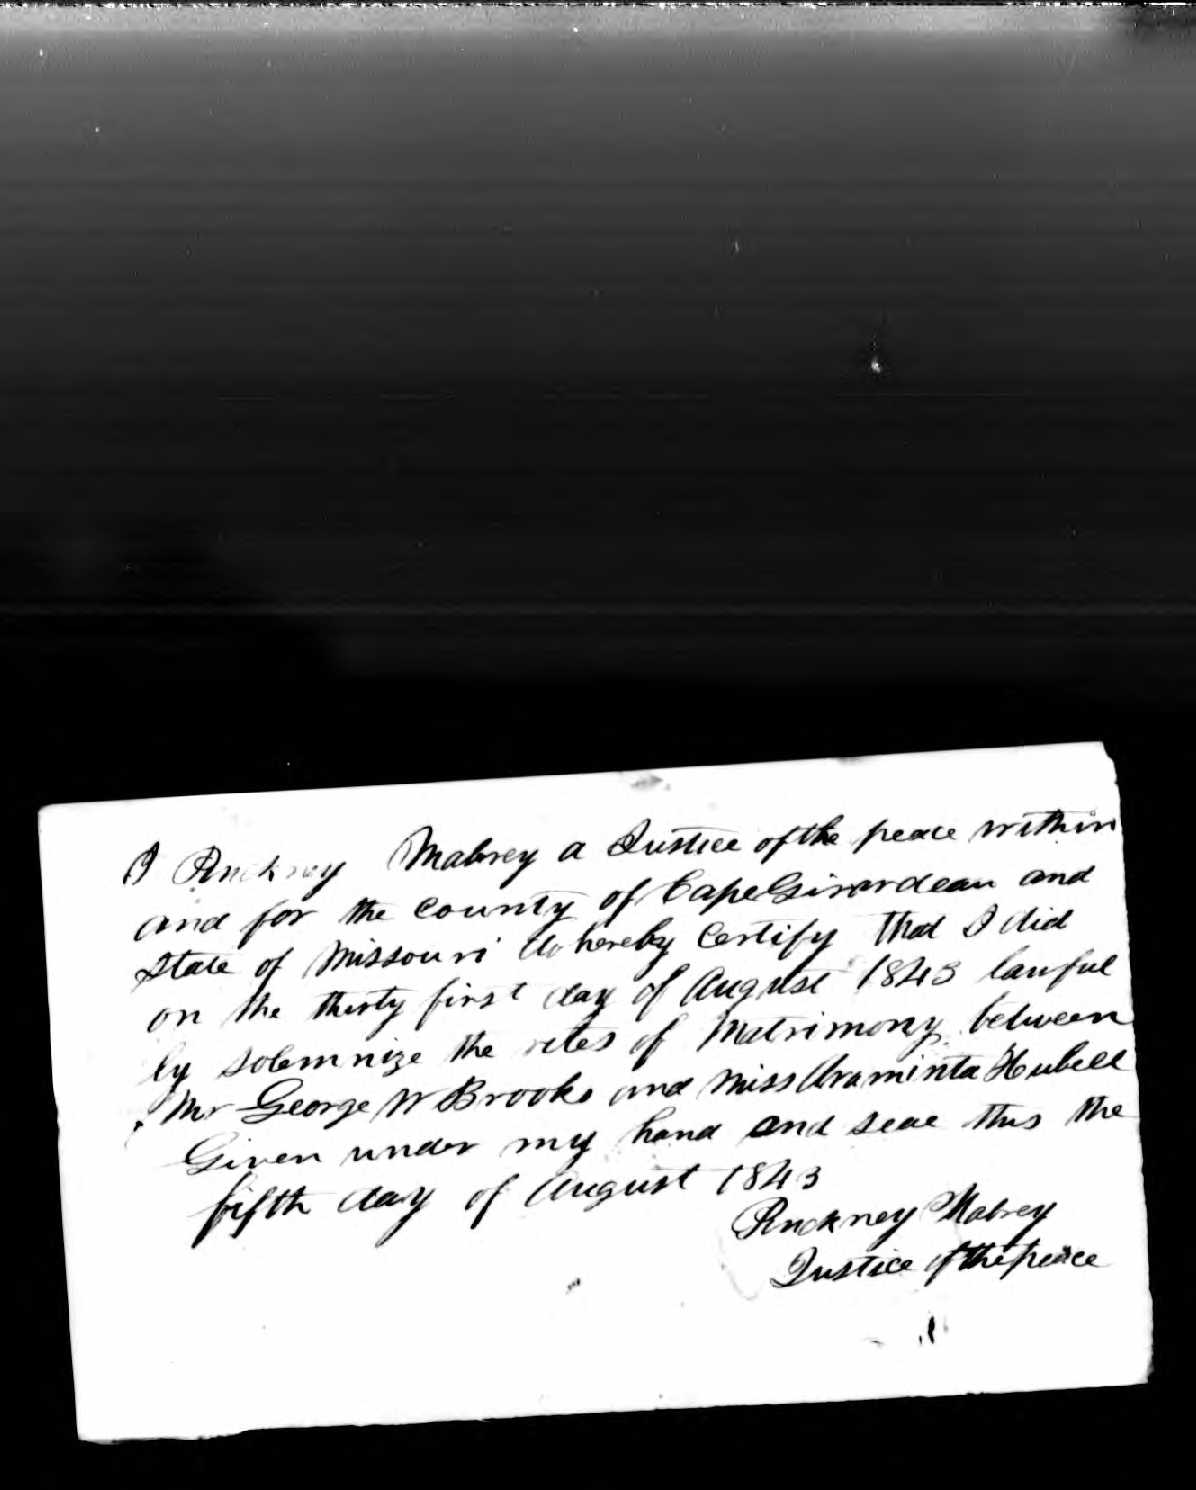 I Pinckney Mabrey a Justice of the peace within
and for the County of Cape Girardeau and
State of Missouri do hereby Certify that I did
on the thirty first day of August 1843 lawful
ly solemnize the rites of Matrimony between
Mr George W Brooks and Miss Araminta Hubell
Given under my hand and seal this the
fifth day of August 1843
Pinckney Mabrey
Justice of the peace